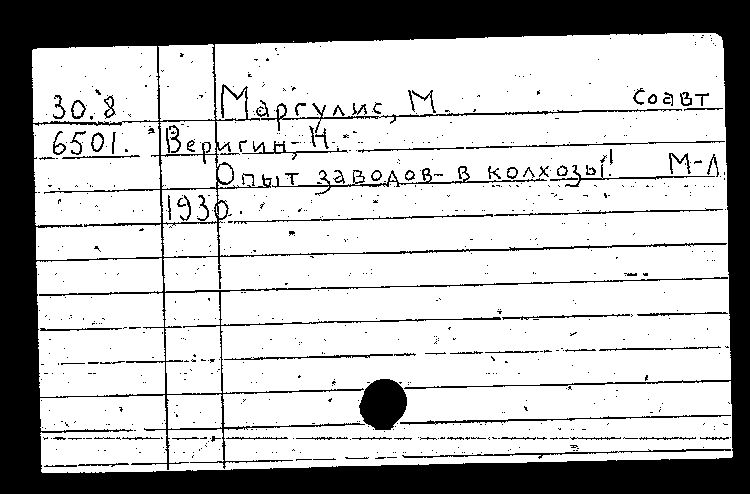 30.8 Маргулис, М. соавт
6501. Веригин, Н.
Опыт заводов - в колхозы! М-Л
1930.